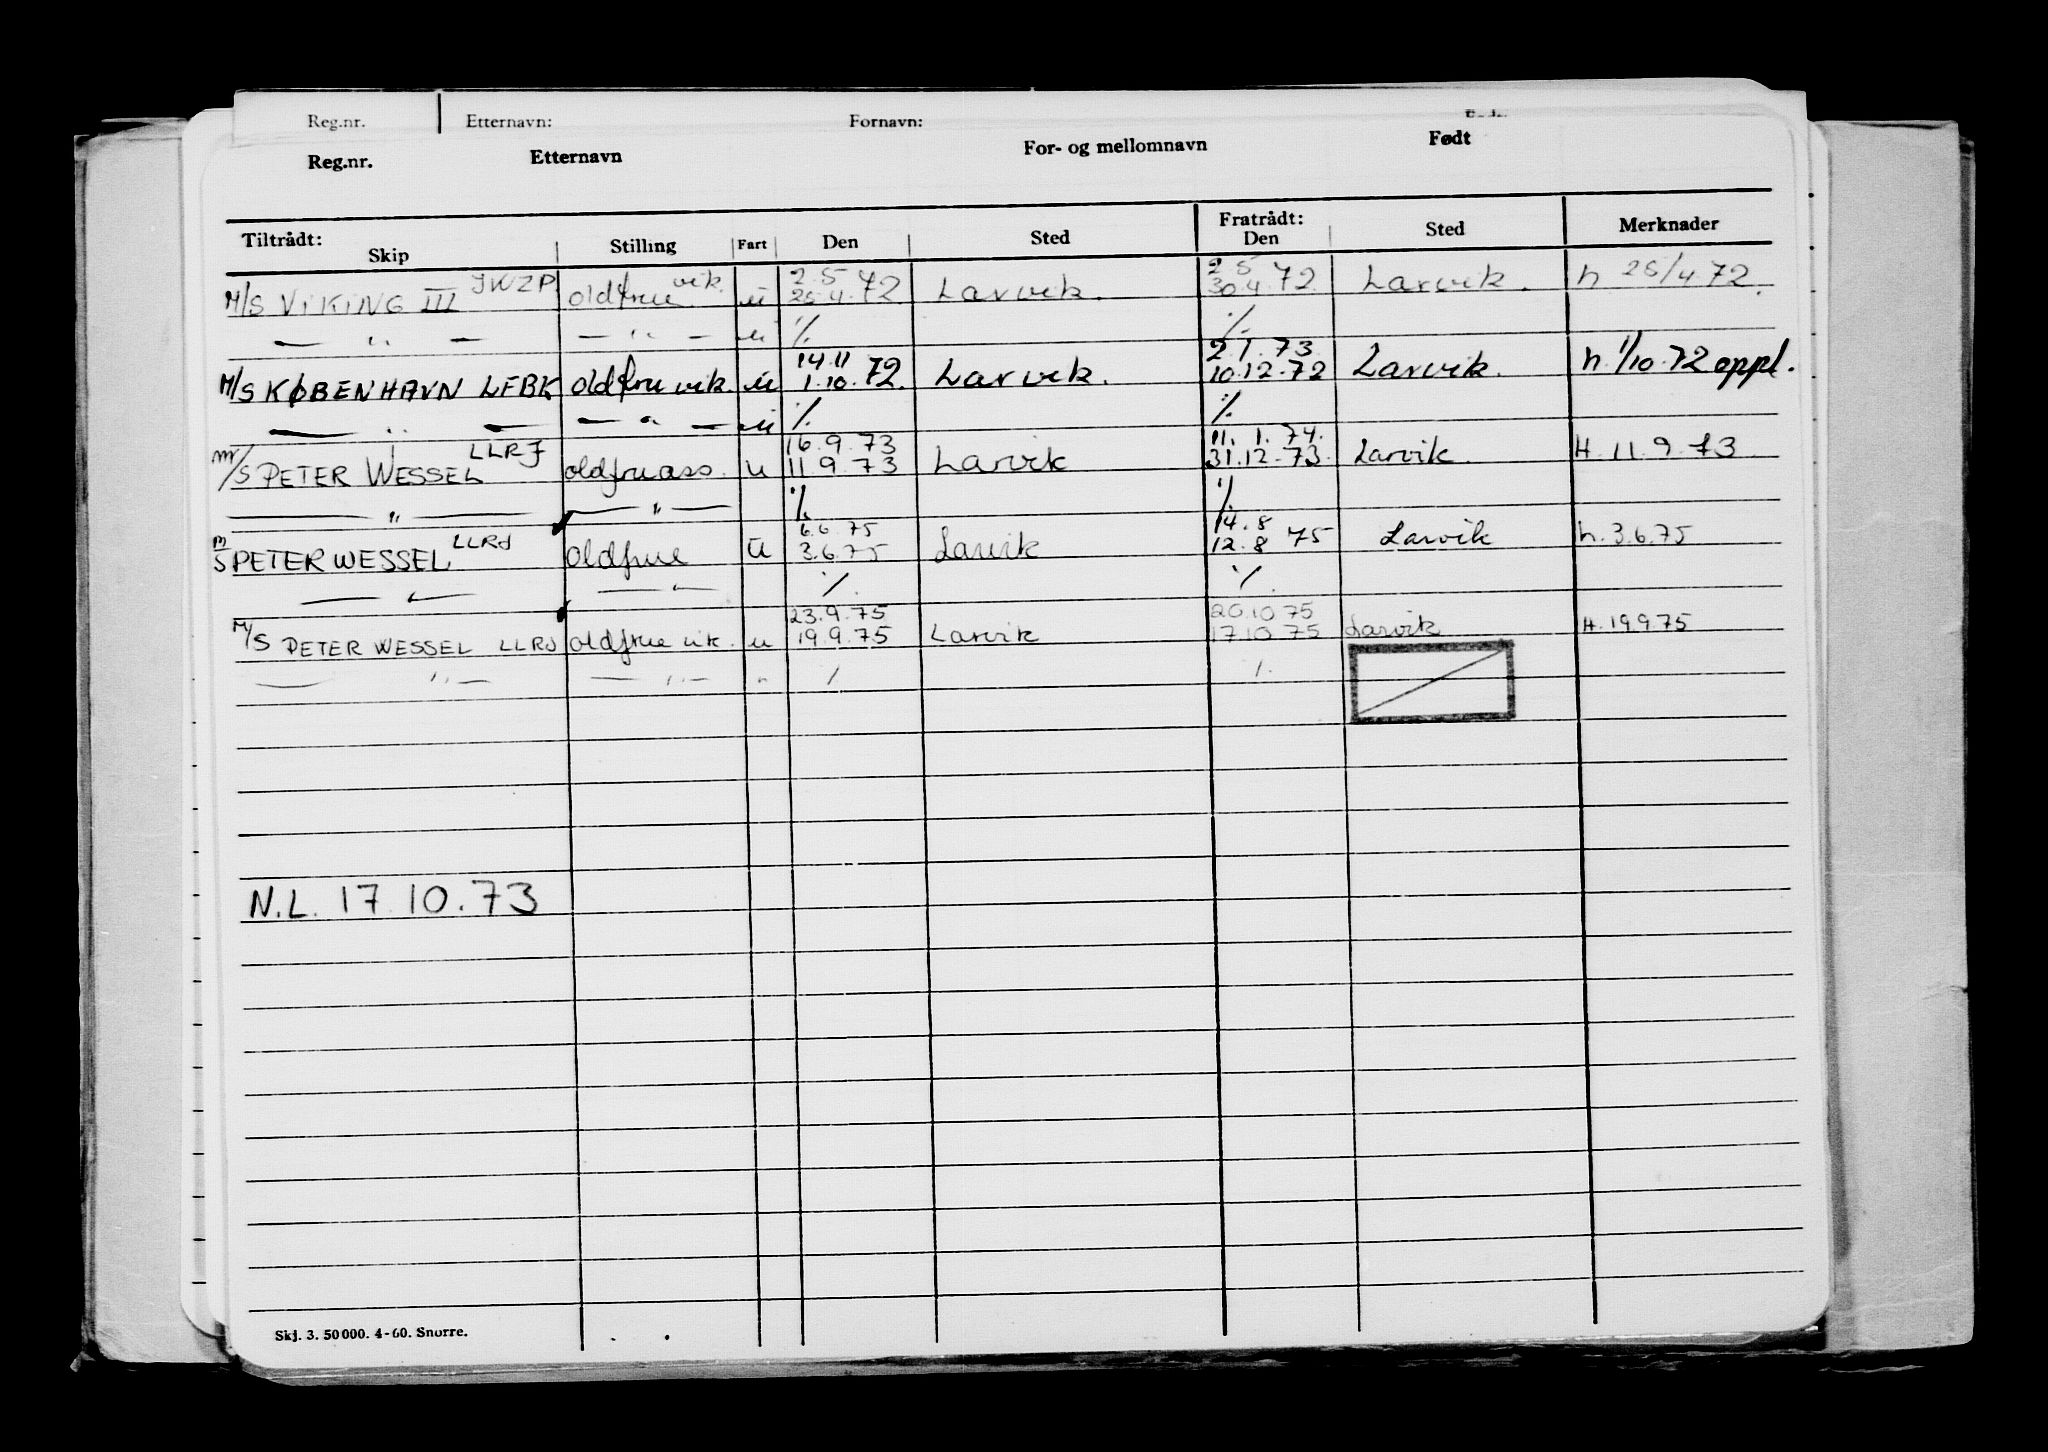 Reg.nr. Etternavn: Fornavn:
Reg.nr. Etternavn For- og mellomnavn Født
Tiltrådt: Fratrådt:
Skip Stilling Fart Den Sted Den Sted Merknader
JWZP vik. 2.5 2 5
M/S VIKING III oldfrue u 25.4.72 Larvik. 30.4.72. Larvik. h 25/4 72.
— " — — " — u % %
14.11 2.1.73
M/S KØBENHAVN LFBK oldfrue vik. u 1.10.72. Larvik. 10.12.72 Larvik. h. 1/10.72 oppl.
— " — — " — u % %
LLRJ 16.9.73 11.1.74.
M/S PETER WESSEL oldfruass. u 11.9.73 Larvik 31.12.73. Larvik. H. 11.9.73
— " — — " — % %
LLRJ 6.6 75 14.8
M/S PETER WESSEL oldfrue u 3.6.75 Larvik 12.8 75 Larvik h.3.6.75
— " — — " — % %
23.9.75 20.10.75
M/S PETER WESSEL LLRJ oldfrue vik. u 19.9.75 Larvik 17.10.75 Larvik H. 19.9.75
— " — — " — " % %
N.L. 17.10.73
Skj. 3. 50 000. 4-60. Snorre.